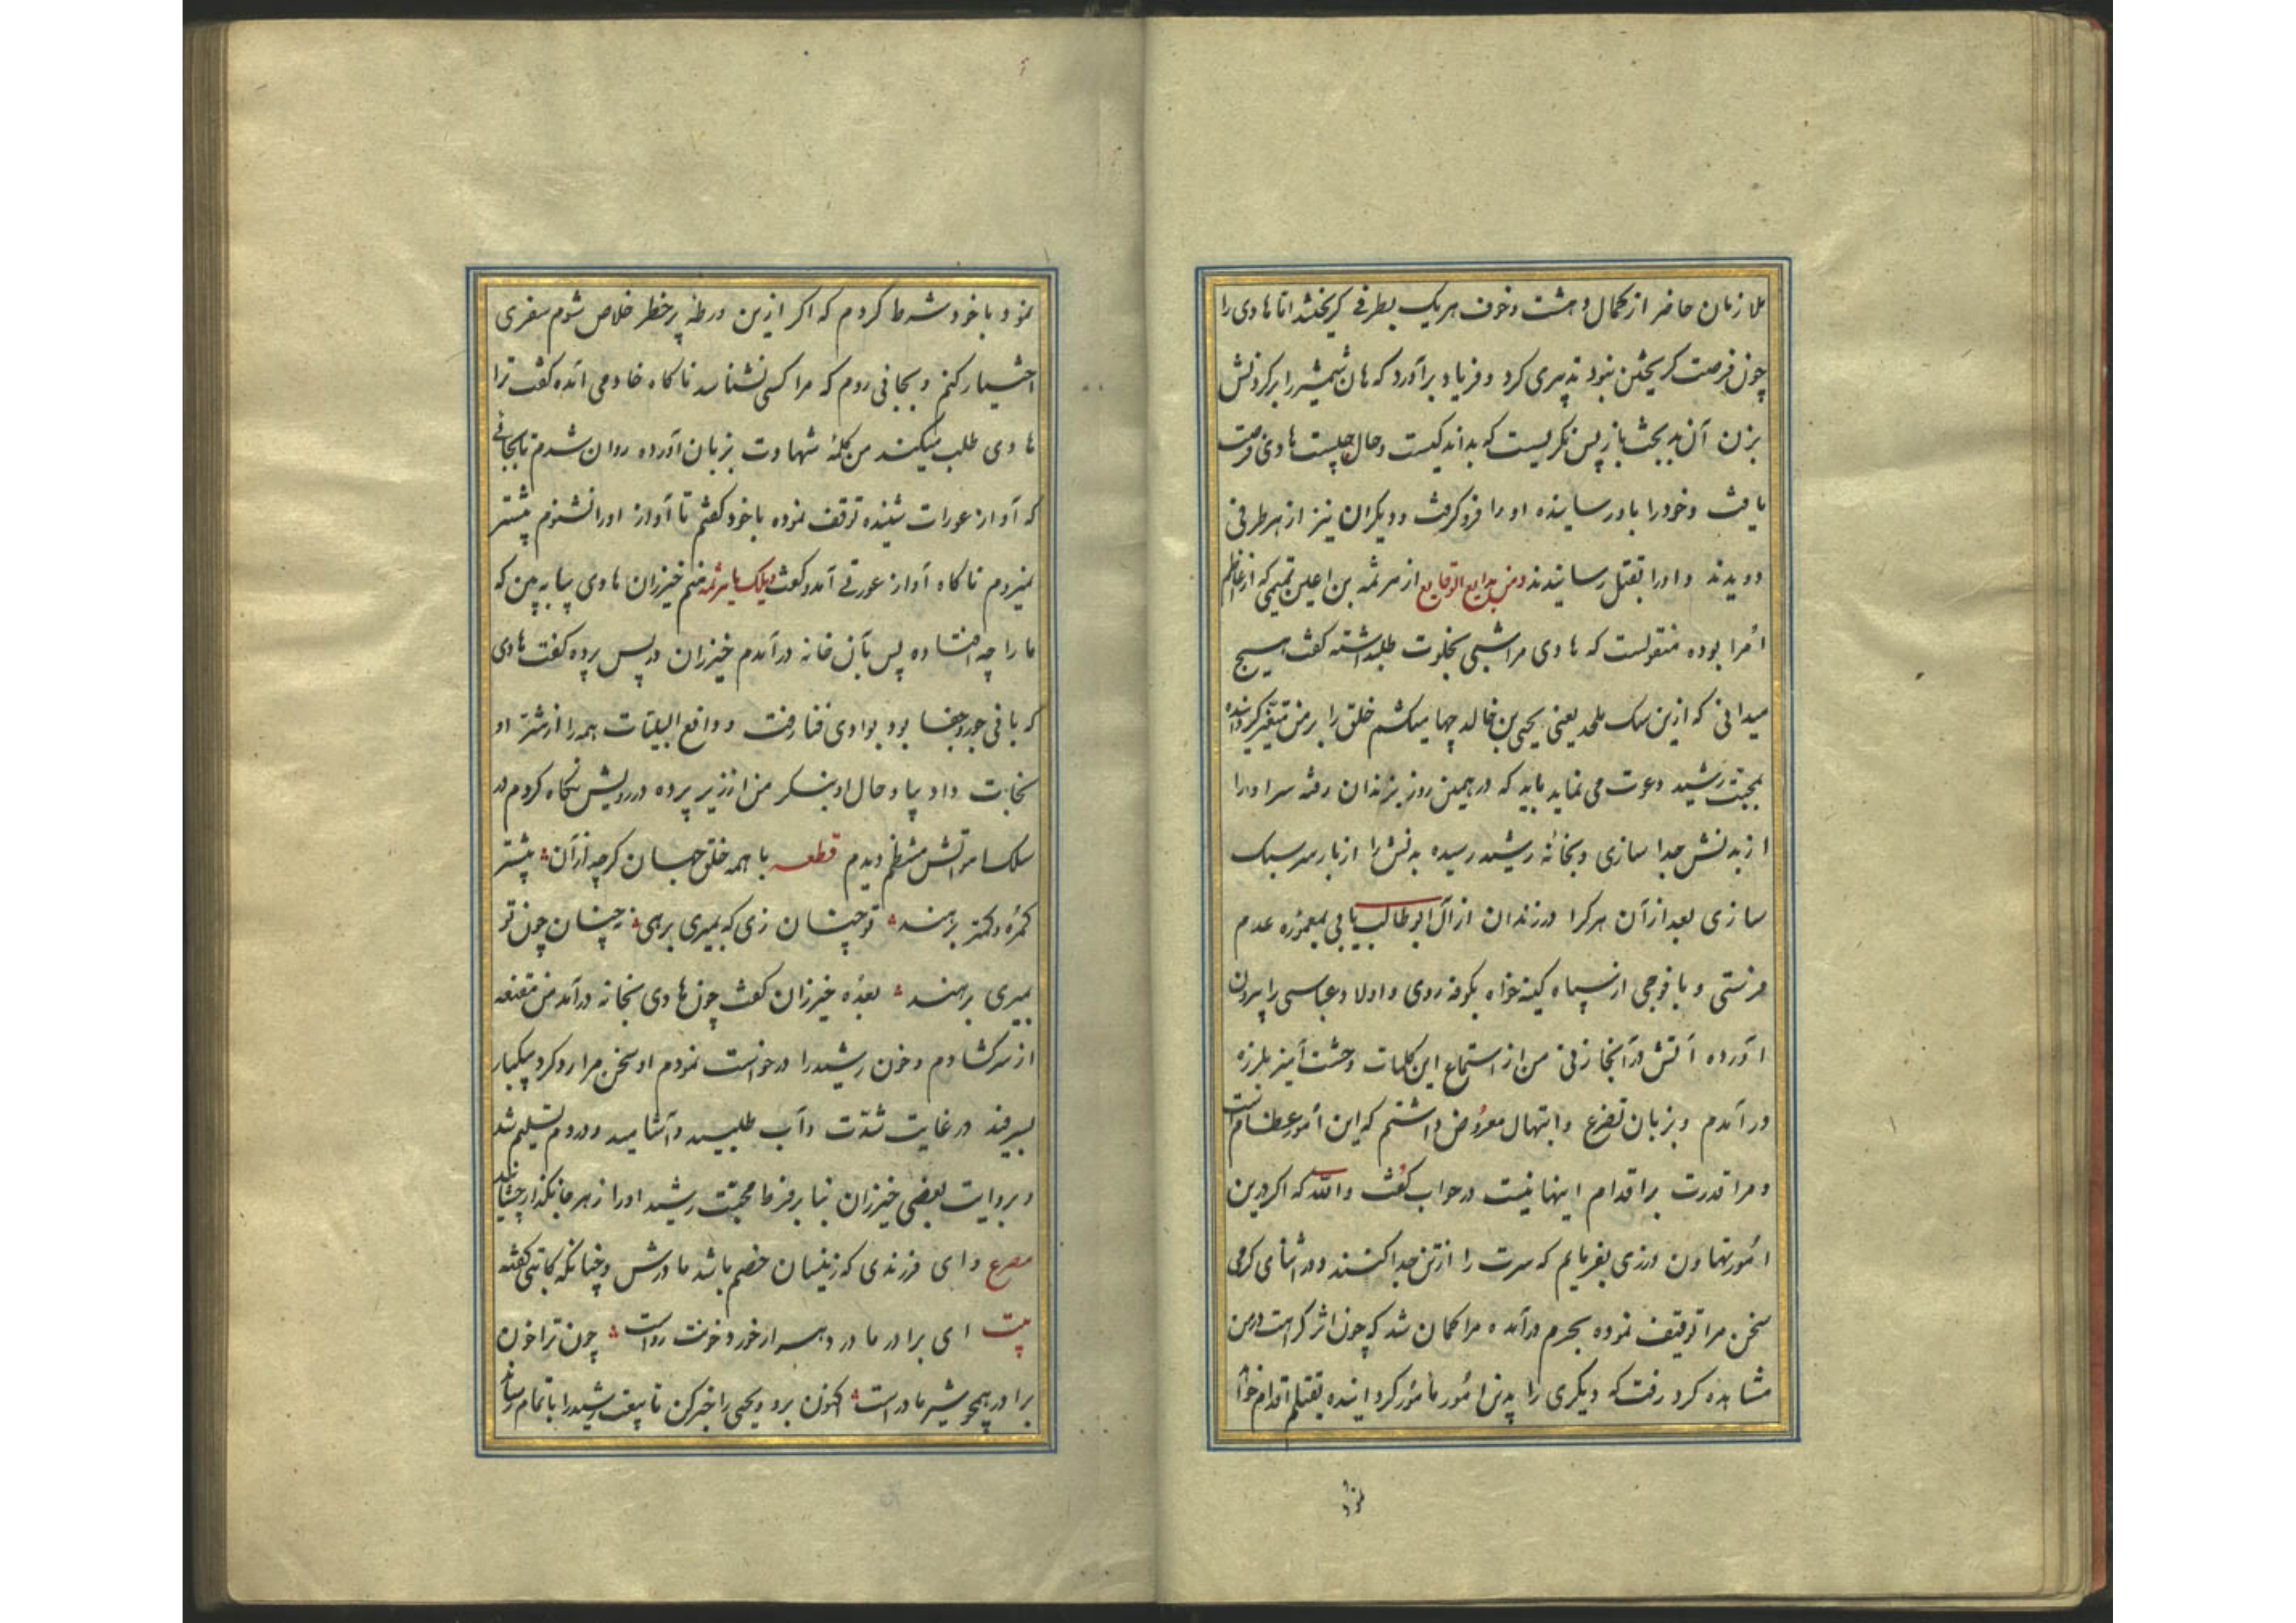 ملازمان حاضر از کمال دهشت و خوف هر یک بطرفی کریختند اما هادی را
چون فرصت کریختن نبود تدبیری کرد و فریاد برآورد که هان شمشیر را برکردنش
بزن آن بدبخت باز پس نکریست که بداند کیست و حال چیست هادی فرصت
یافت و خود را باو رسانیده او را فرو کرفت و دیکران نیز از هر طرفی
دویدند و او را بقتل رسانیدند و من بدایع الوقایع از هرثمه بن اعین تمیمی که از اعاظم
امرا بوده منقولست که هادی مرا شبی بخلوت طلبداشته کفت هیچ
میدانی که ازین سک ملحد یعنی یحیی بن خالد چها میکشم خلق را بر من متغیر کردانیده
بمحبت رشید دعوت می نماید باید که در همین روز بزندان رفته سر او را
از بدنش جدا سازی و بخانه رشید رسیده بدنش را از بار سر سبک
سازی بعد از آن هر کرا در زندان از آل ابوطالب یابی بمعموره عدم
فرستی و با فوجی از سپاه کینه خواه بکوفه روی و اولاد عباسی را بیرون
آورده آتش در آنجا زنی من از استماع این کلمات وحشت آمیز بلرزه
در آمدم و بزبان تضرع و ابتهال معروض داشتم که این امور عظام است
و مرا قدرت بر اقدام اینها نیست در جواب کفت والله که اکر درین
امور تهاون ورزی بفرمایم که سرت را از تن جدا کنند و در اثنای کرمی
سخن مرا توقیف نموده بحرم درآمد و مرا کمان شد که چون اثر کراهت در من
مشاهده کرد رفت که دیکری را بدین امور مأمور کردانیده بقتلم اقدام خوا
نمود
نمود با خود شرط کردم که اکر ازین ورطه پرخطر خلاص شوم سفری
اختیار کنم و بجائی روم که مرا کسی نشناسد ناکاه خادمی آمده کفت ترا
هادی طلب میکند من کلمه شهادت بزبان آورده روان شدم تا بجائی
که آواز عورات شنیده توقف نموده با خود کفتم تا آواز او را نشنوم پیشتر
نمیروم ناکاه آواز عورتی آمد و کفت ویلک یا هرثمه منم خیزران هادی بیا به بین که
ما را چه افتاده پس بآن خانه در آمدم خیزران در پس پرده کفت هادی
که بانی جور و جفا بود بوادی فنا رفت و دافع البلیات همه را از شر او
نجات داد بیا و حال او بنکر من از زیر پرده در رویش نکاه کردم در
سلک امواتش منتظم دیدم قطعه با همه خلق جهان کرچه از آن پیشتر
کمره و کمتر برهند تو چنان زی که بمیری برهی نه چنان چون تو
بمیری برهند بعده خیزران کفت چون هادی بخانه درآمد من مقنعه
از سر کشادم و خون رشید را درخواست نمودم او سخن مرا رد کرد و یکبار
بسرفید در غایت شدت و آب طلبید و آشامید و در دم تسلیم شد
و بروایت بعضی خیزران بنا بر فرط محبت رشید او را زهر جانکذار چشانید
مصرع وای فرزندی که زینسان خصم باشد مادرش و چنانکه کاتبی کفته
بیت ای برادر مادر دهر ار خورد خونت رواست چون ترا خون
برادر همچو شیر مادر است اکنون برو و یحیی را خبر کن تا بیعت رشید را باتمام رساند